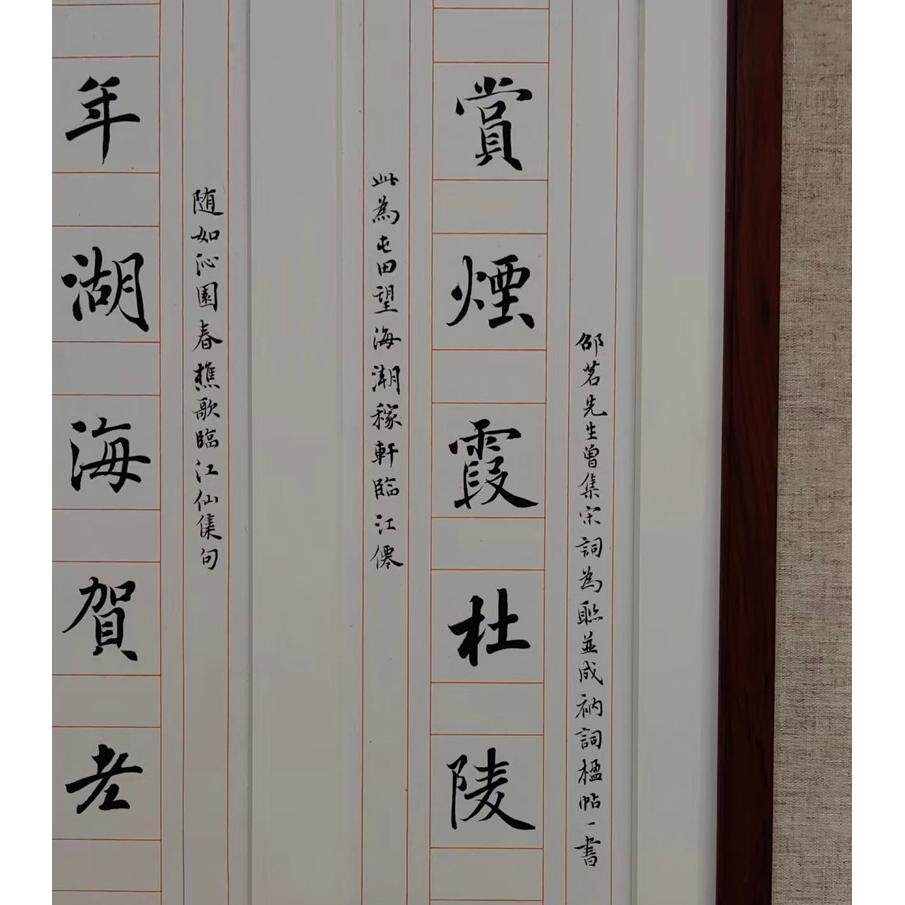 邵茗先生曾集宋詞為聮並成衲詞楹帖一書
賞煙霞杜陵
此為屯田望海潮稼軒臨江僊
随如沁園春樵歌臨江仙集句
年湖海賀老